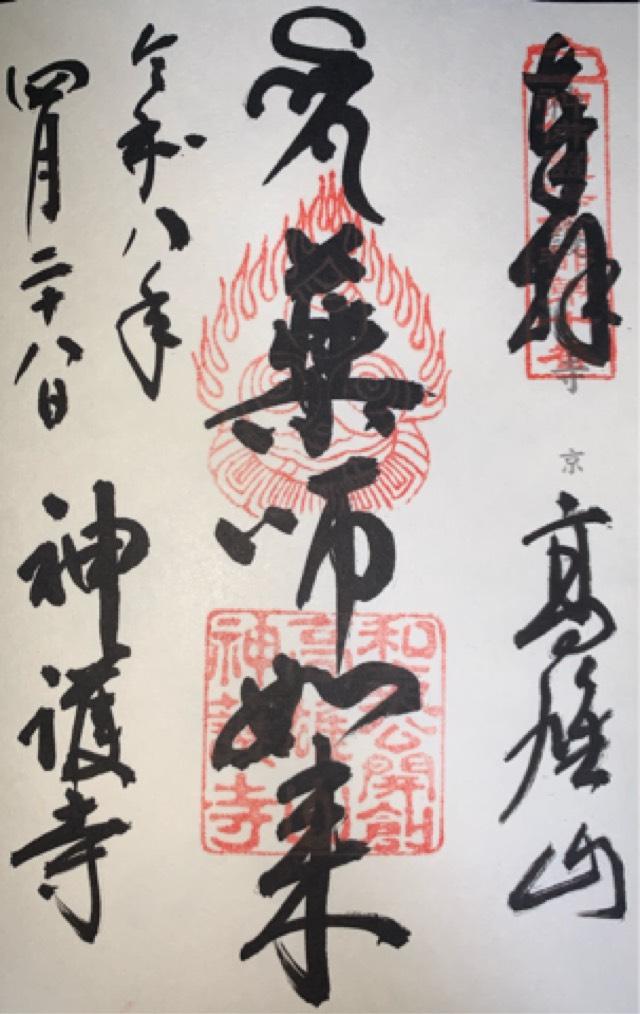 奉拝
京
高雄山
薬師如来
和気公開創
高雄山
神護寺
令和八年
四月二十八日
神護寺